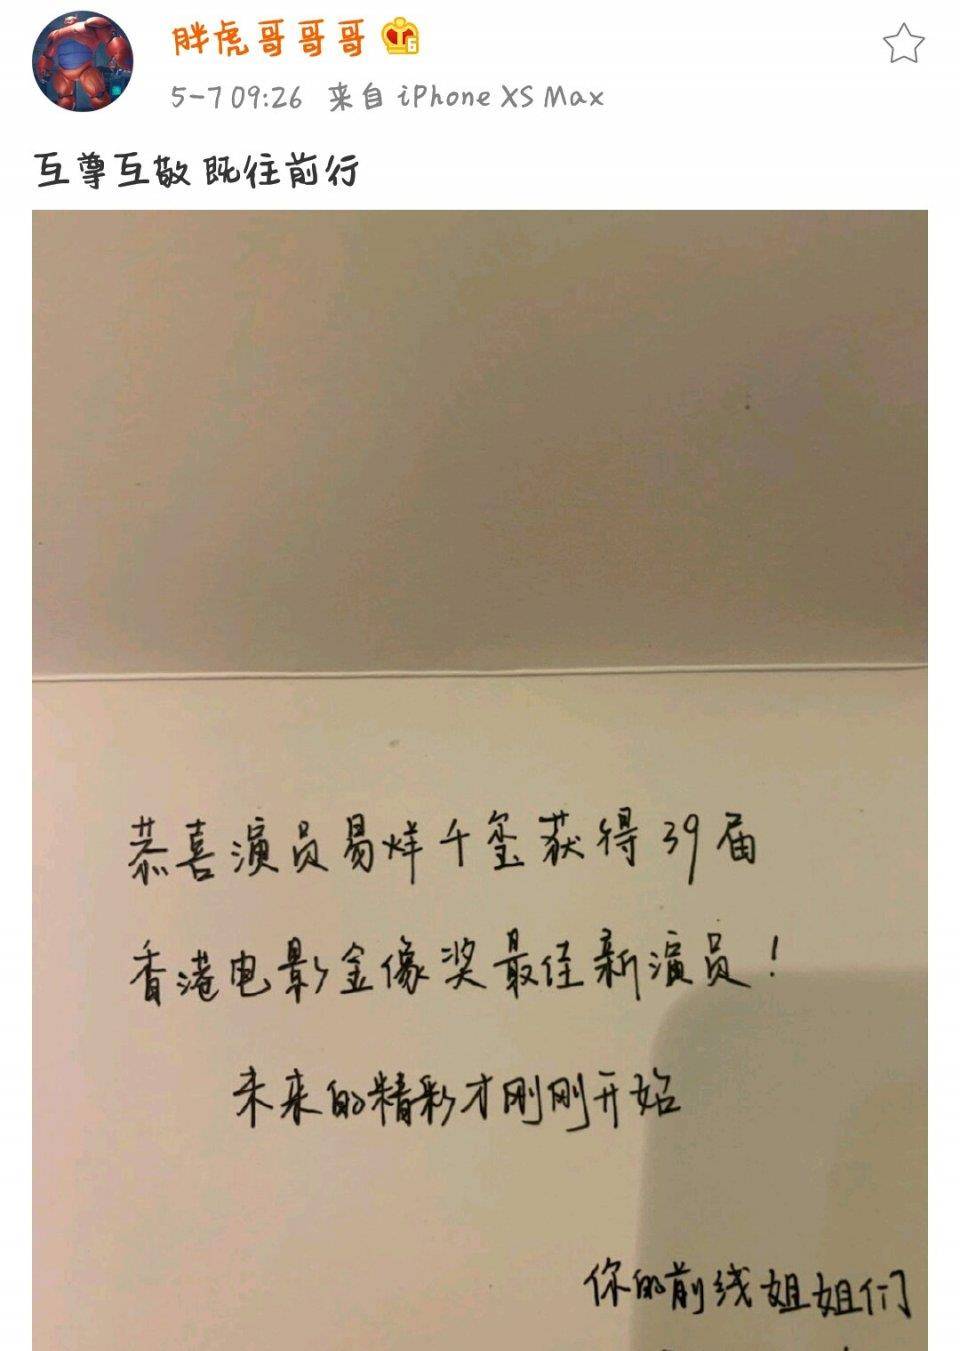 胖虎哥哥哥
5-7 09:26 来自 iPhone XS Max
互尊互敬 既往前行
恭喜演员易烊千玺获得39届
香港电影金像奖最佳新演员！
未来的精彩才刚刚开始
你的前线姐姐们